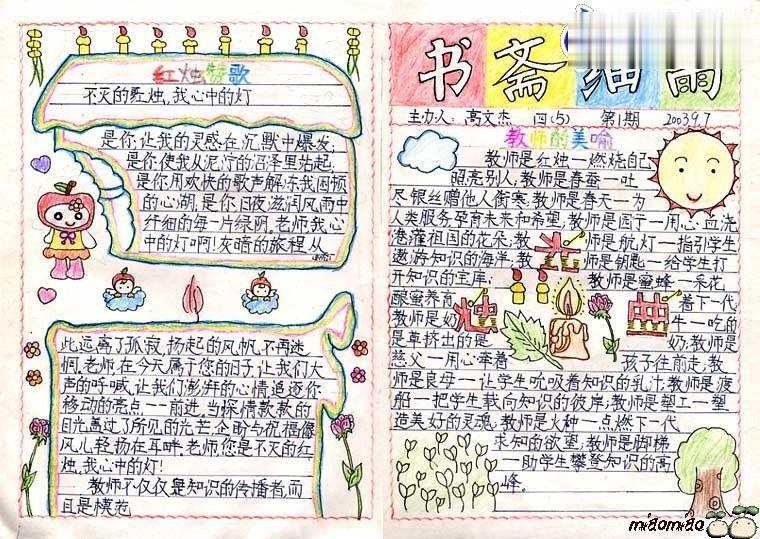 红烛 歌
不灭的红烛,我心中的灯
是你,让我的灵感在沉默中爆发,
是你使我从泥泞的沼泽里站起,
是你用欢快的歌声解冻我困顿
的心湖,是你日夜滋润风雨中
纤细的每一片绿阴,老师,我心
中的灯啊!灰暗的旅程,从
此远离了孤寂,扬起的风帆,不再迷
惘,老师,在今天属于您的日子,让我们大
声的呼喊,让我们澎湃的心情追逐你
移动的亮点——前进,当深情款款的
目光,越过了所见的光芒,企盼与祝福像
风儿轻扬在耳畔,老师,您是不灭的红
烛,我心中的灯!
教师不仅仅是知识的传播者,而
且是模范
书斋 雨
主办人:高文杰 四(5) 第1期 2003.9.7
教师的美喻
教师是红烛—燃烧自己
照亮别人;教师是春蚕—吐
尽银丝赠他人御寒;教师是春天—为
人类服务,孕育未来和希望;教师是园丁—用心血浇
灌祖国的花朵;教师是航灯—指引学生
遨游知识的海洋;教师是钥匙—给学生打
开知识的宝库;教师是蜜蜂—采花
酿蜜养育着下一代
教师是奶牛—吃的
是草挤出的是奶,教师是
慈父—用心牵着孩子往前走,教
师是良母—让学生吮吸着知识的乳汁,教师是渡
船—把学生载向知识的彼岸;教师是塑工—塑
造美好的灵魂;教师是火种—点燃下一代
求知的欲望;教师是脚梯
—助学生攀登知识的高
峰。
miaomiao